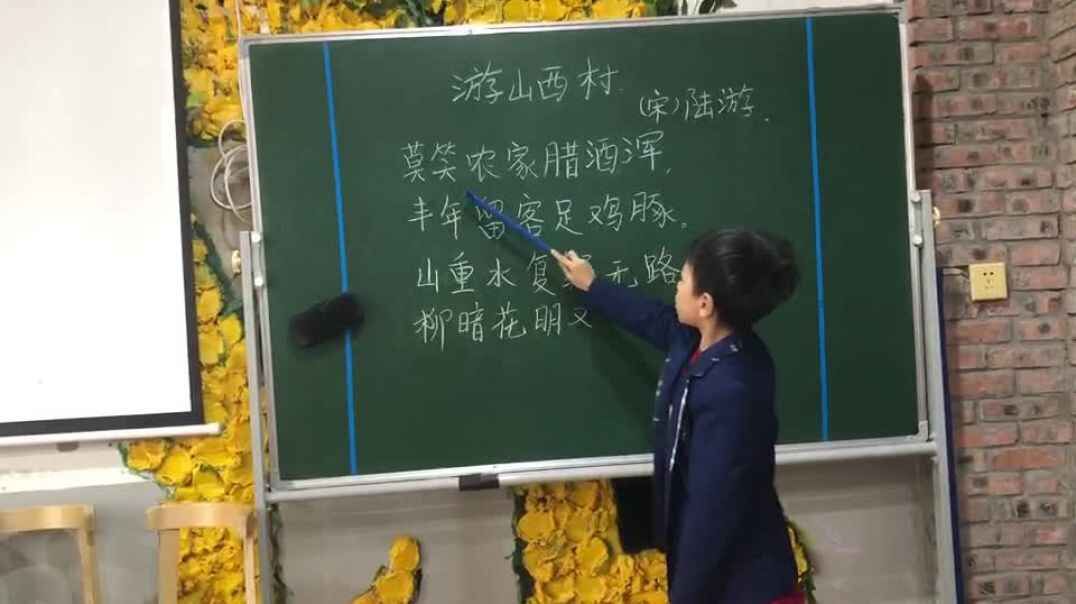 游山西村.
(宋)陆游.
莫笑农家腊酒浑,
丰年留客足鸡豚。
山重水复无路
柳暗花明又